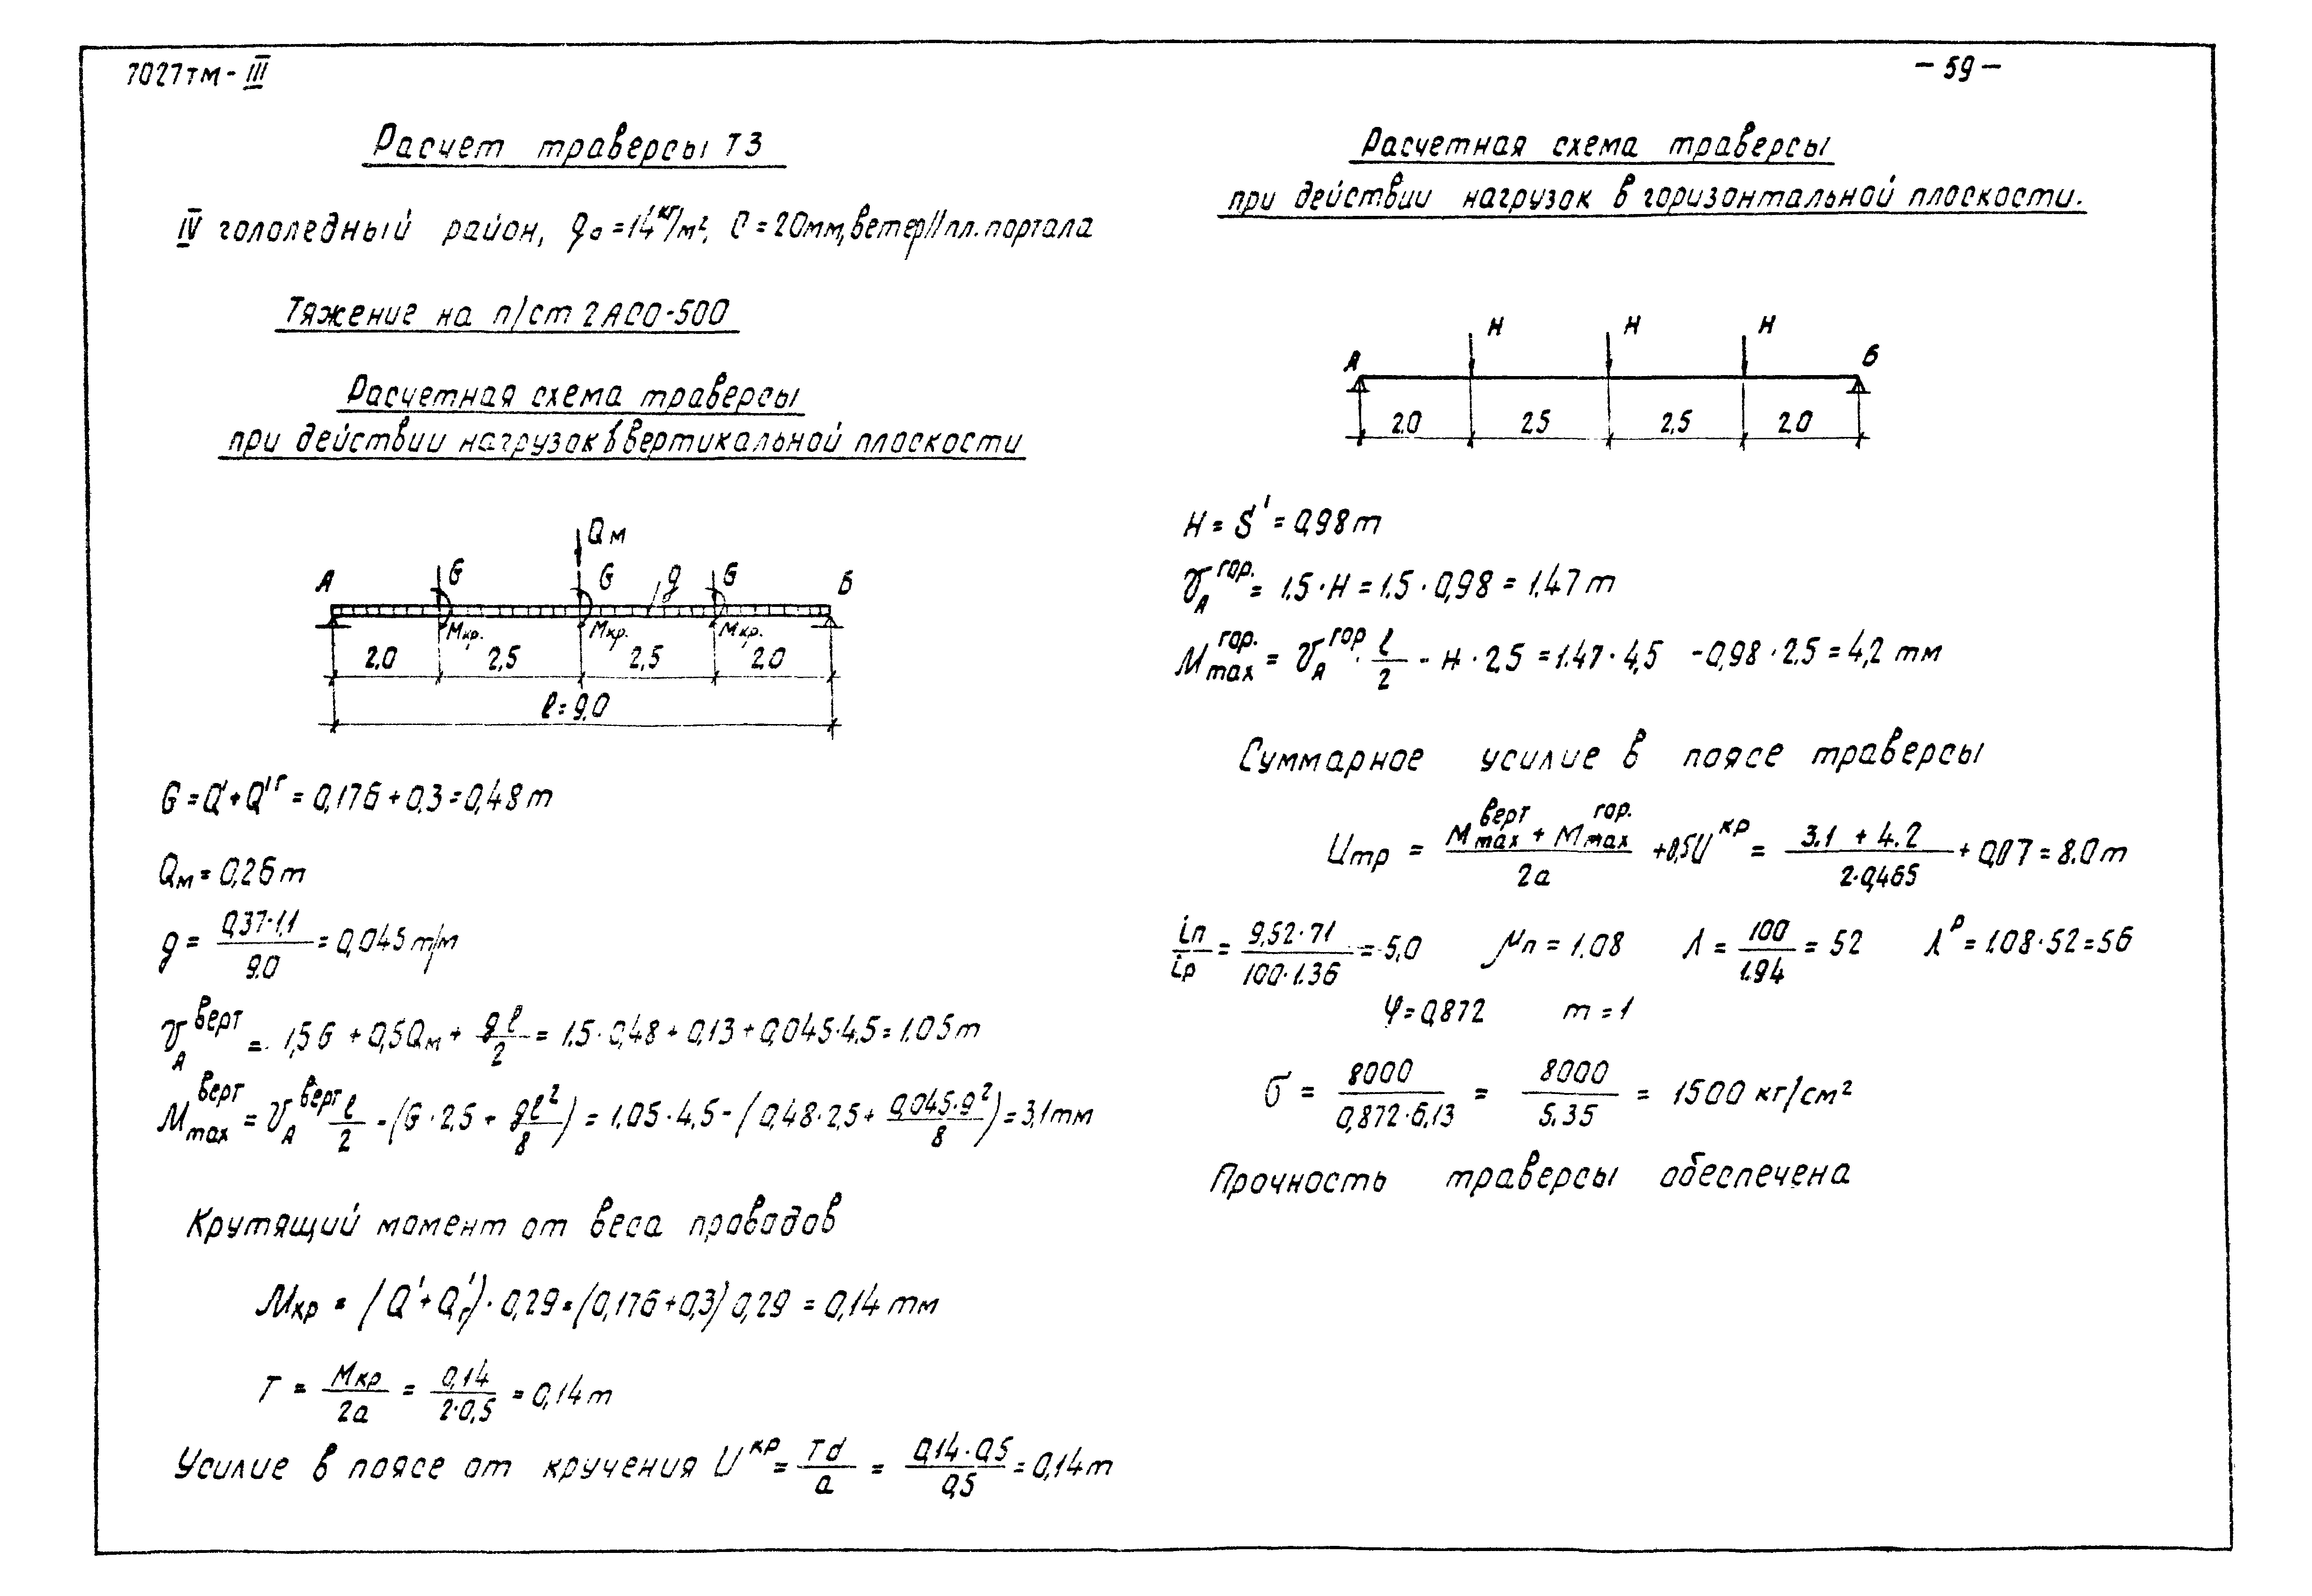 7027тм-III
-59-
Расчет траверсы Т3
IV гололедный район, q₀=14кг/м², С=20мм, ветер//пл.портала
Тяжение на п/ст 2АСО-500
Расчетная схема траверсы
при действии нагрузок в вертикальной плоскости
Qм
А G G g G Б
Мкр. Мкр. Мкр.
2,0 2,5 2,5 2,0
ℓ=9,0
G=Q'+Q'ᴦ=0,176+0,3=0,48т
Qм=0,26т
g = 0,37·1,1 / 9.0 = 0,045т/м
V_A^верт = 1,5G+0,5Qм + gℓ/2 = 1.5·0,48+0,13+0,045·4.5=1.05т
M_max^верт = V_A^верт ℓ/2 -(G·2,5+ gℓ²/8) = 1.05·4,5-(0,48·2,5+ 0,045·9²/8)=3,1тм
Крутящий момент от веса проводов
Мкр = (Q'+Qг')·0,29=(0,176+0,3)0,29=0,14тм
Т = Мкр/2а = 0,14/2·0,5 = 0,14т
Усилие в поясе от кручения U^кр = Td/а = 0,14·0,5/0,5 = 0,14т
Расчетная схема траверсы
при действии нагрузок в горизонтальной плоскости.
Н Н Н
А Б
2.0 2.5 2,5 2.0
Н=S'=0,98т
V_A^гор. = 1.5·Н=1.5·0,98=1.47т
M_max^гор. = V_A^гор · ℓ/2 - Н·2,5=1.47·4,5 -0,98·2.5=4,2 тм
Суммарное усилие в поясе траверсы
Uтр = M_max^верт + M_max^гор. / 2а +0,5U^кр = 3.1+4.2 / 2·0,465 + 0,07=8.0т
iп/iр = 9,52·71 / 100·1.36 = 5,0 μп=1.08 λ = 100/1.94 = 52 λ^р=1.08·52=56
φ=0,872 m=1
σ = 8000 / 0,872·6,13 = 8000 / 5.35 = 1500 кг/см²
Прочность траверсы обеспечена